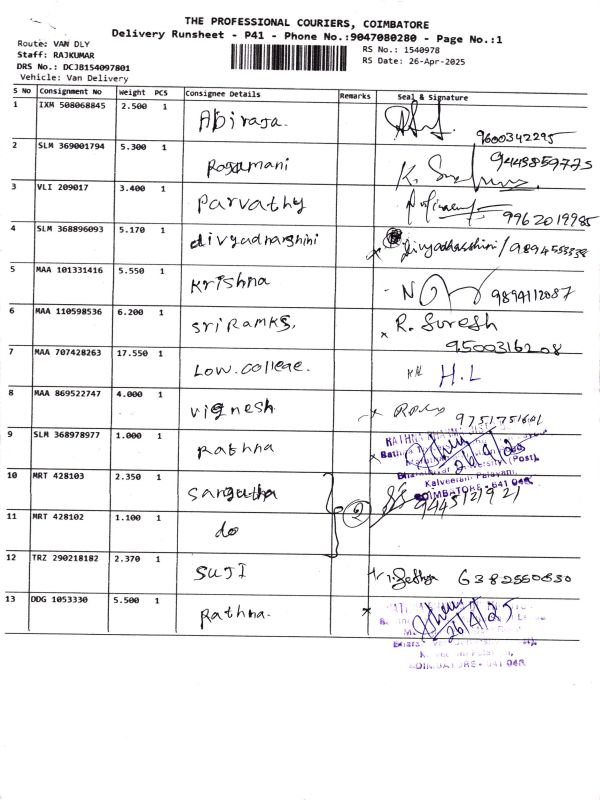 THE PROFESSIONAL COURIERS, COIMBATORE
Delivery Runsheet - P41 - Phone No.:9047080280 - Page No.:1
Route: VAN DLY
RS No.: 1540978
Staff: RAJKUMAR
RS Date: 26-Apr-2025
DRS No.: DCJB154097801
Vehicle: Van Delivery
S No Consignment No Weight PCS Consignee Details Remarks Seal & Signature
1 IXM 508068845 2.500 1 Abiraja. 9600342295
2 SLM 369001794 5.300 1 Rogamani K. 9448859775
3 VLI 209017 3.400 1 Parvathy 9962019985
4 SLM 368896093 5.170 1 divyadharshini Divyadharshini / 9894555338
5 MAA 101331416 5.550 1 Krishna 9894112087
6 MAA 110598536 6.200 1 Sri Ramks. R. Suresh
9500316208
7 MAA 707428263 17.550 1 Low. college. H.L
8 MAA 869522747 4.000 1 vignesh 9751751601
9 SLM 368978977 1.000 1 Rathna 26/4/25
University (Post),
Kalveeram Palayam,
COIMBATORE - 641 046.
10 MRT 428103 2.350 1 Sangeetha 2 9445121921
11 MRT 428102 1.100 1 do
12 TRZ 290218182 2.370 1 SUJI 6382550830
13 DDG 1053330 5.500 1 Rathna. 26/4/25
COIMBATORE - 641 046.